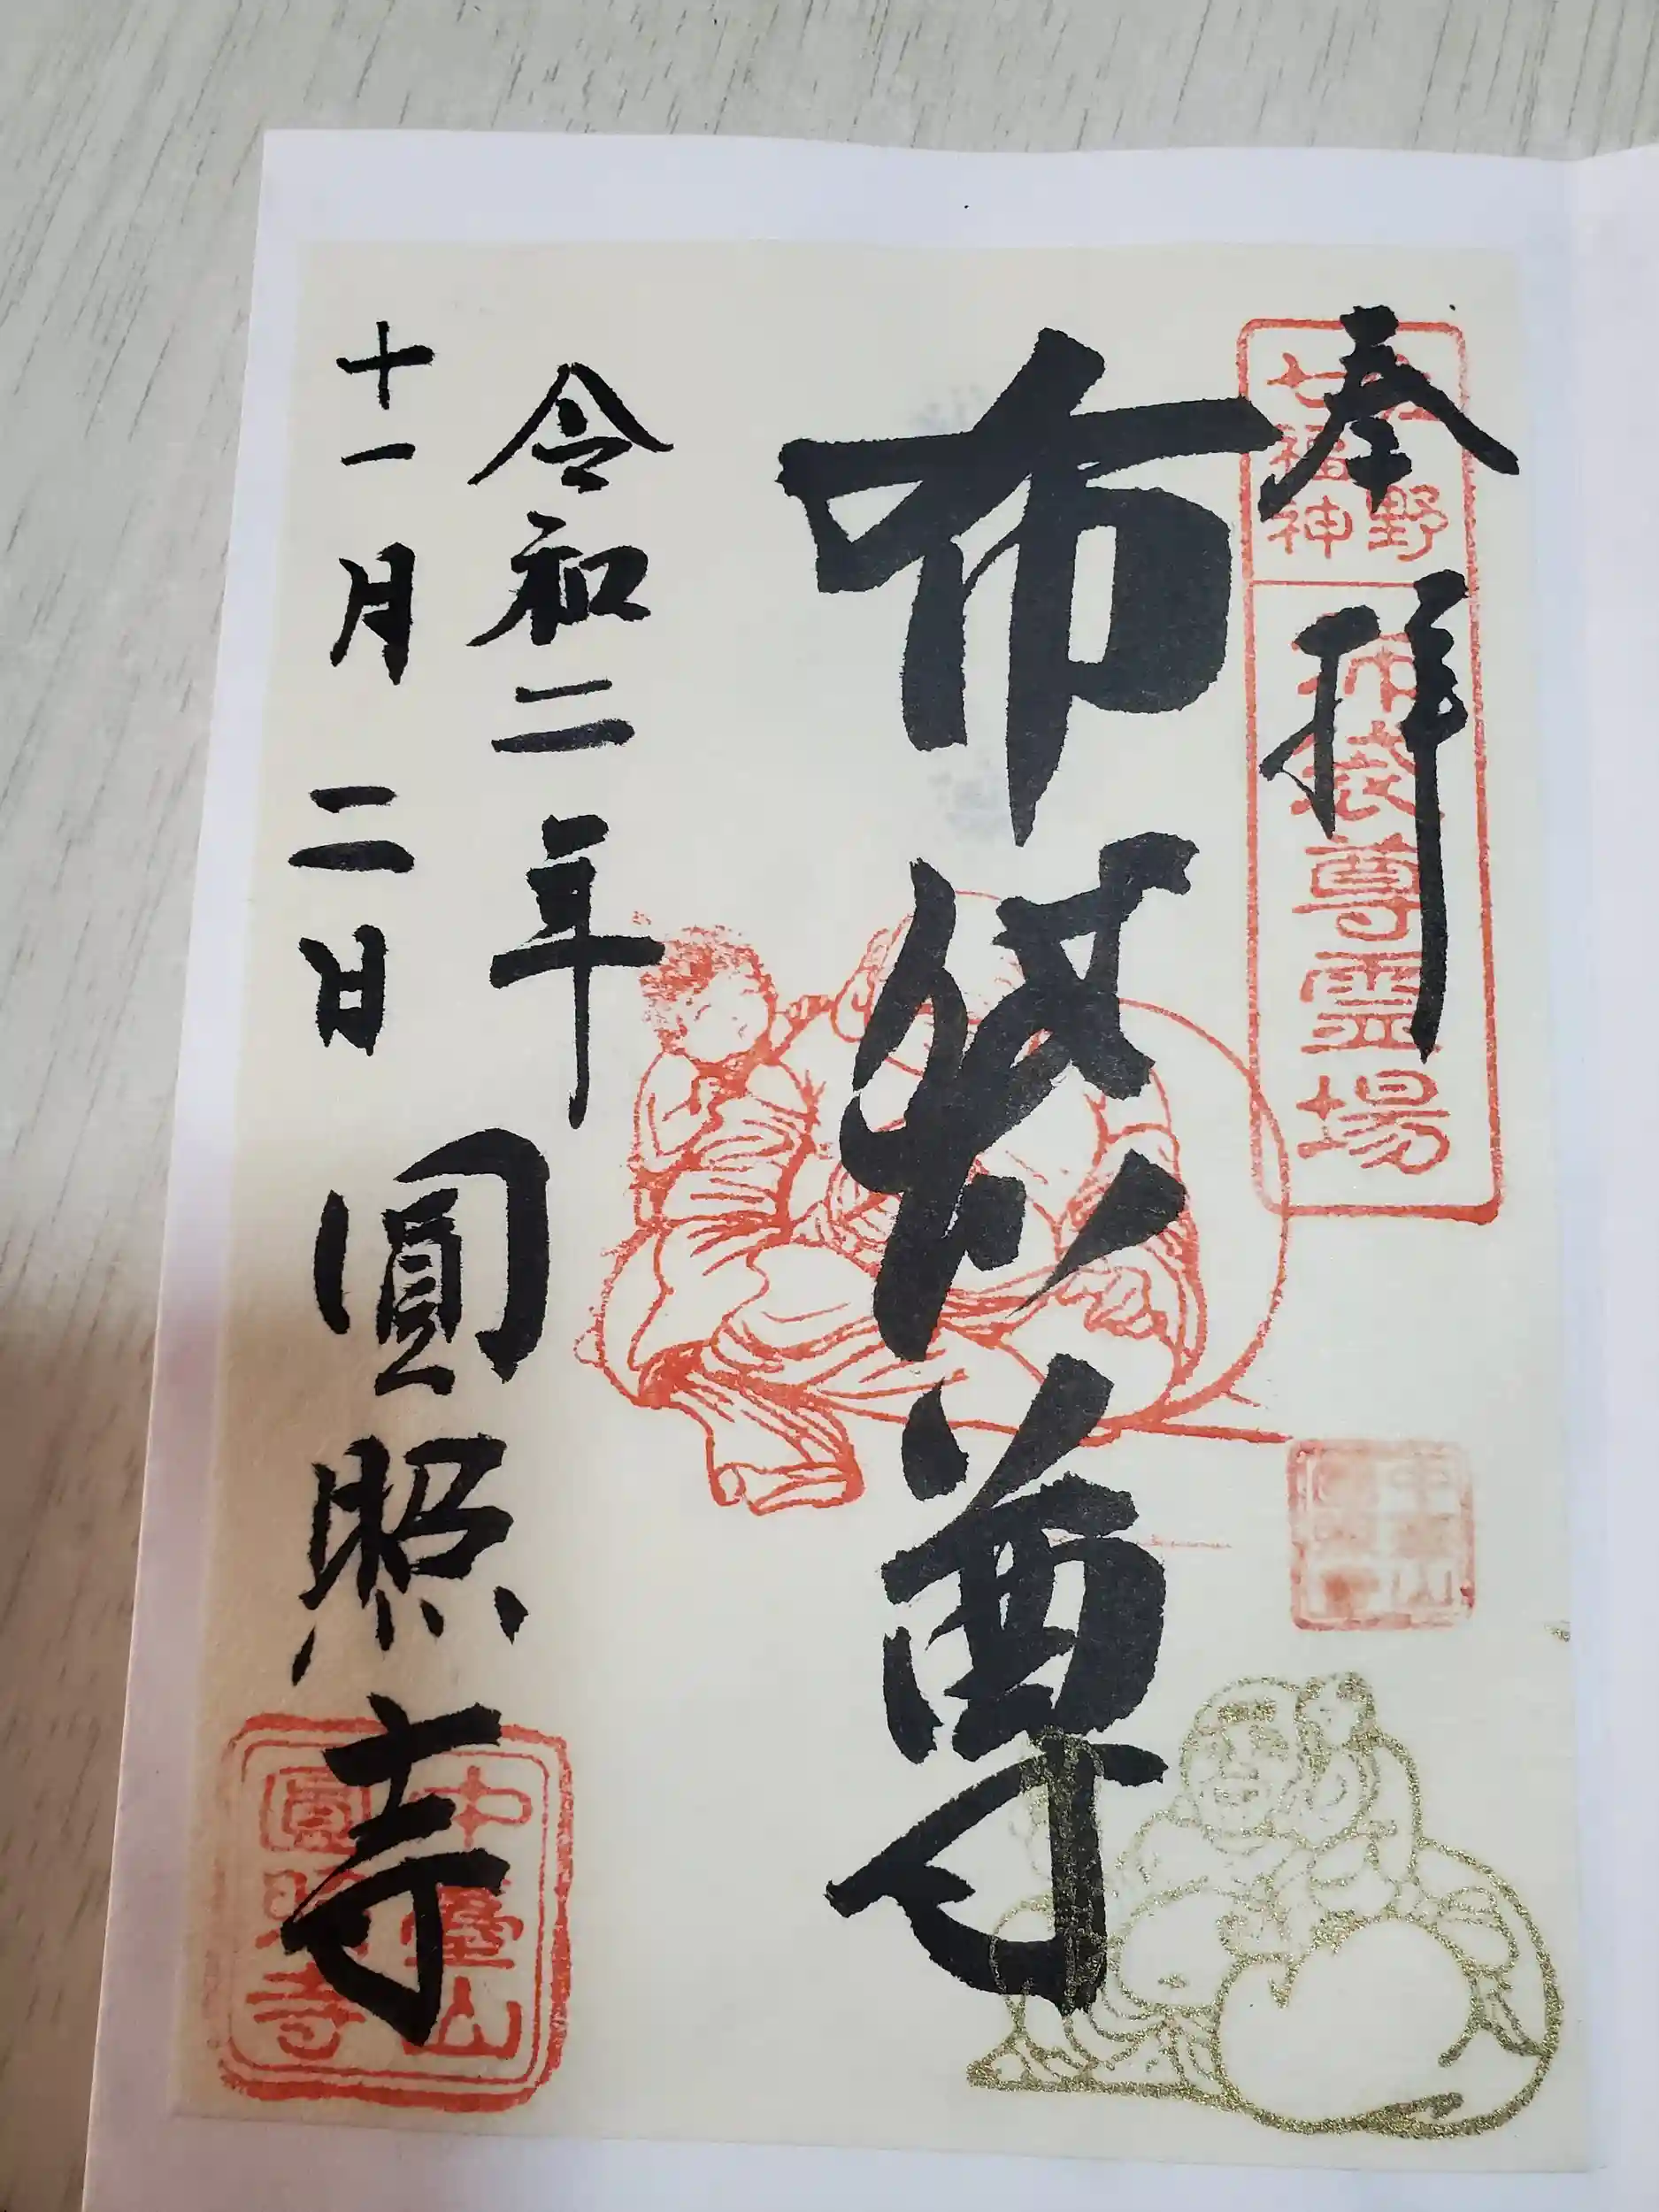 奉拝
野
七福神
布袋尊霊場
布袋尊
令和二年
十一月二日
圓照寺
中臺山
圓照寺